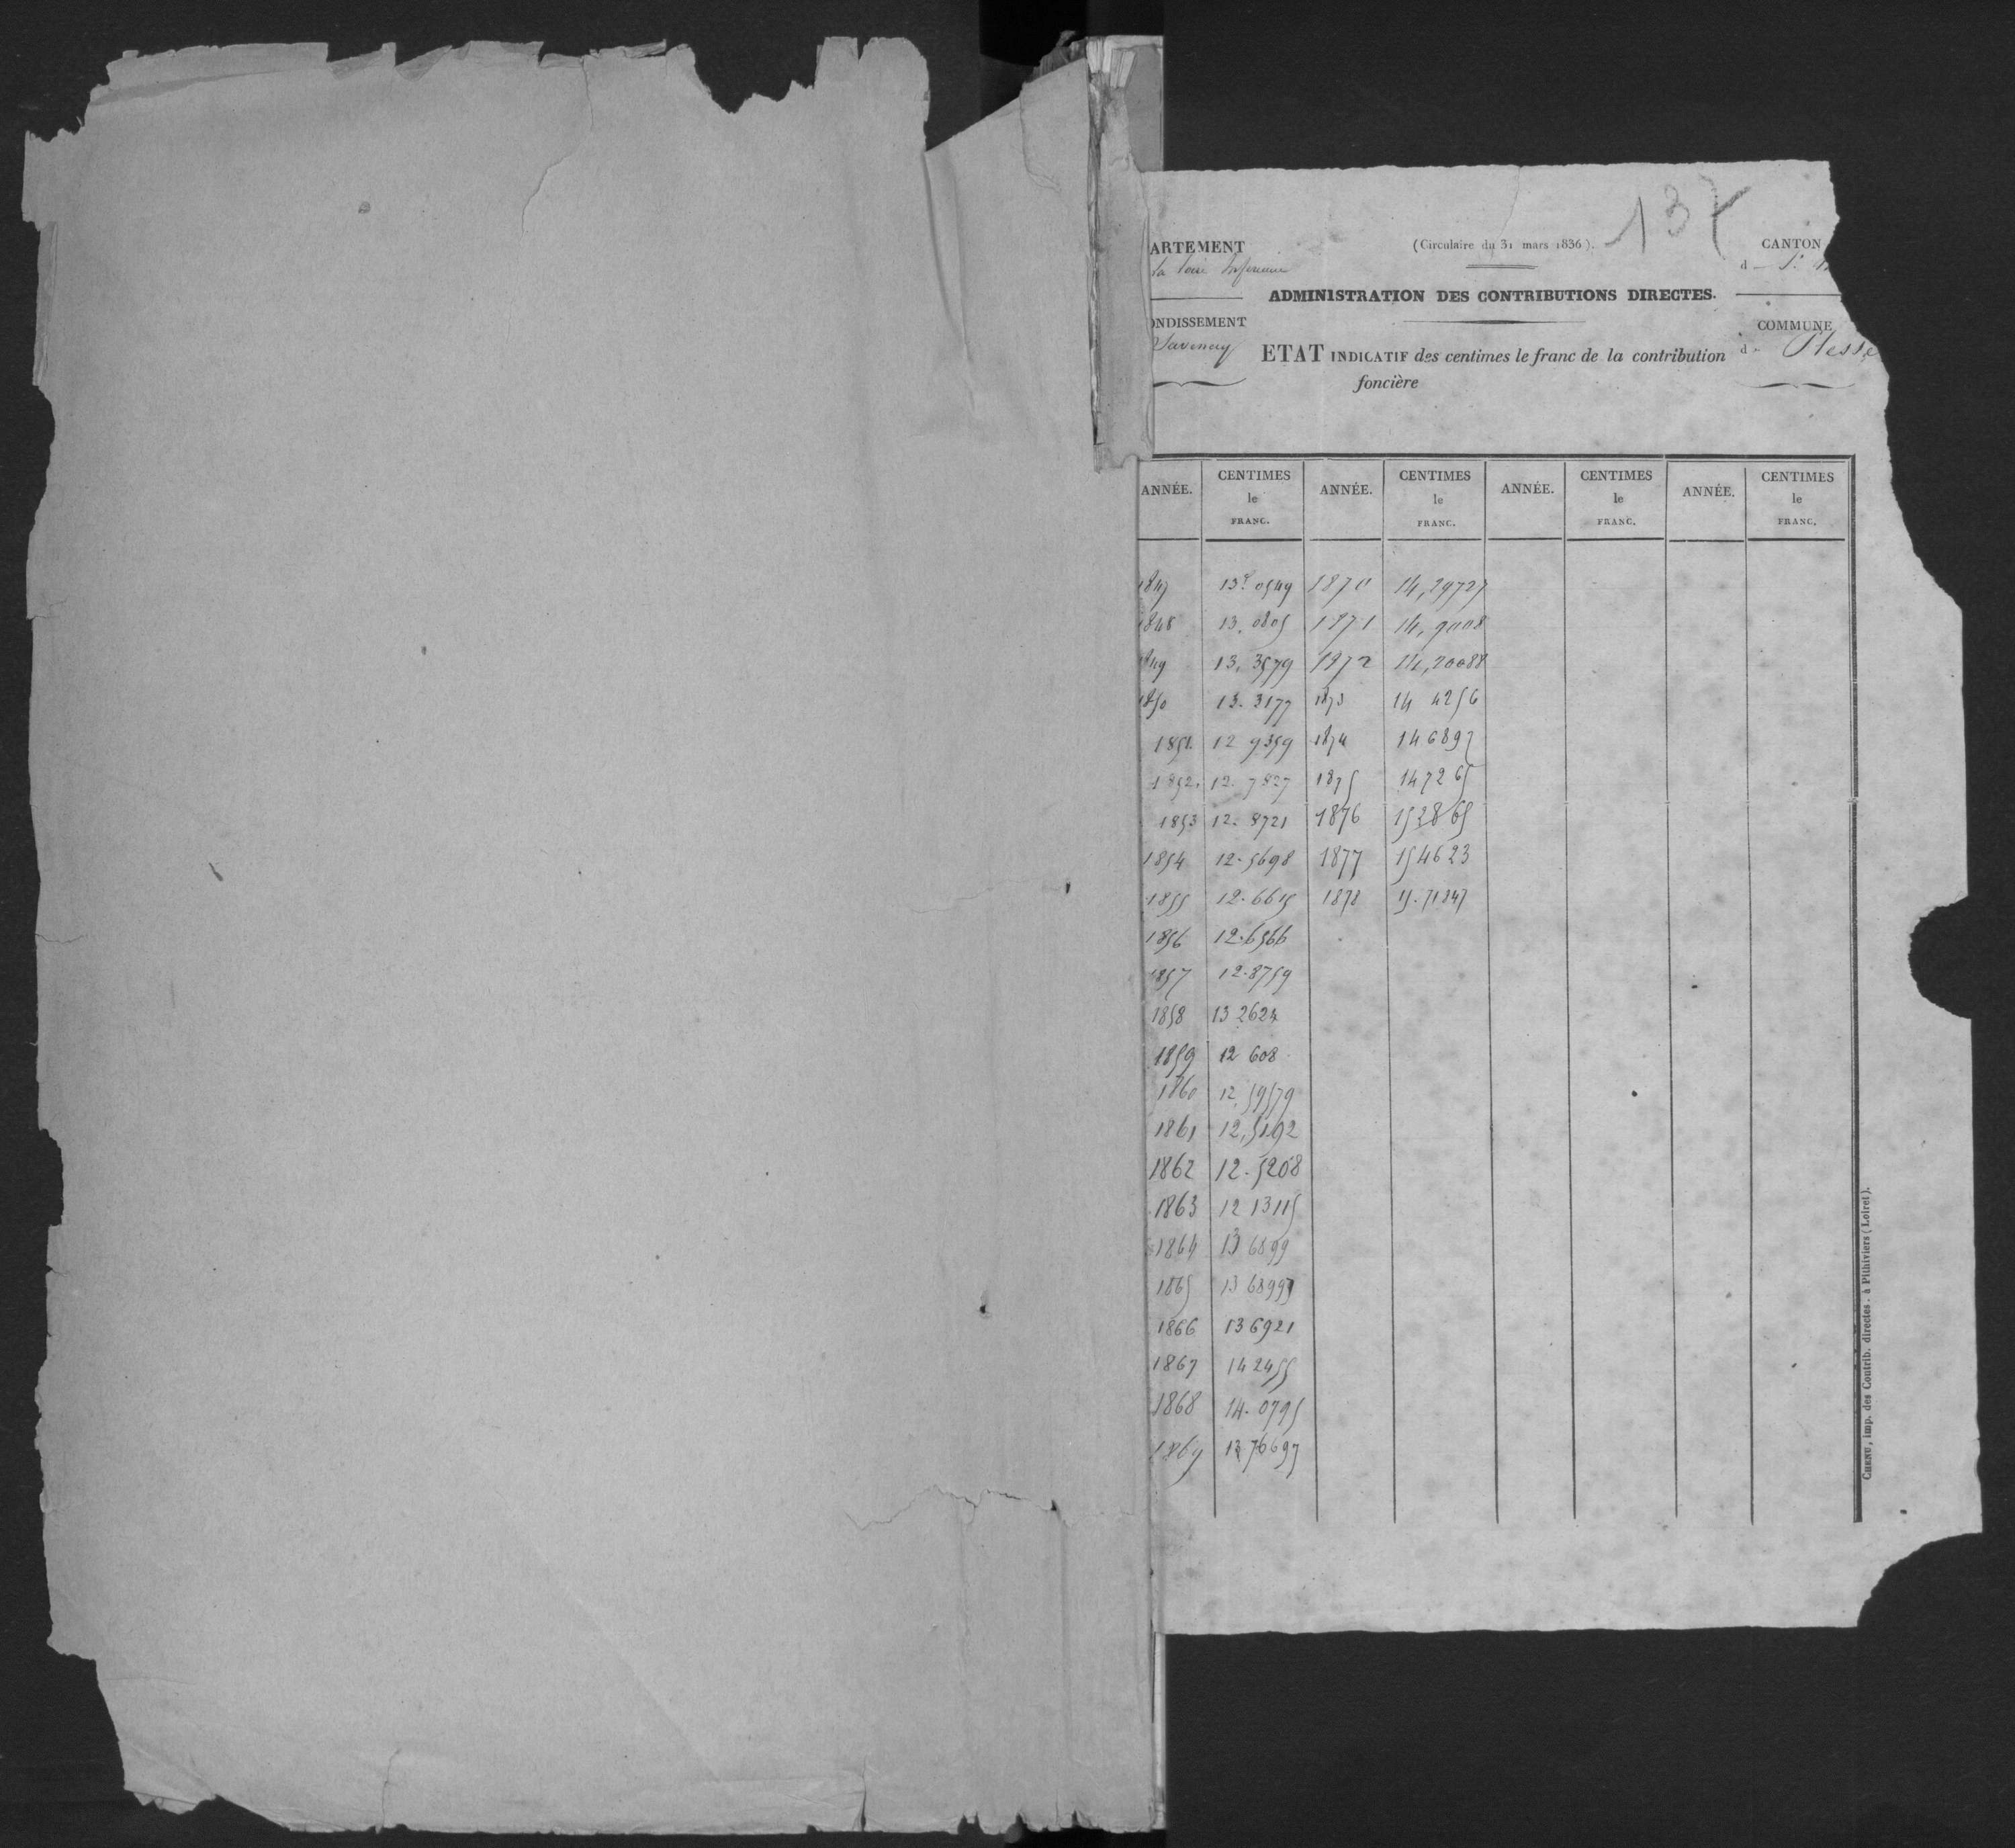 137
ARTEMENT
la Loire Inférieure
(Circulaire du 31 mars 1836).
CANTON
d
ADMINISTRATION DES CONTRIBUTIONS DIRECTES.
ONDISSEMENT
Savenay
COMMUNE
d Plessé
ETAT INDICATIF des centimes le franc de la contribution
foncière
ANNÉE. CENTIMES le FRANC. ANNÉE. CENTIMES le FRANC. ANNÉE. CENTIMES le FRANC. ANNÉE. CENTIMES le FRANC.
1847 13.0549 1870 14,29727
1848 13.0805 1871 14,9008
1849 13.3579 1872 14,20088
1850 13.3177 1873 14 4256
1851. 12 9359 1874 14 6897
1852. 12.7827 1875 14 7265
1853 12.8721 1876 15 3865
1854 12.5698 1877 15 4623
1855 12.6615 1878 15.71347
1856 12.6566
1857 12.8759
1858 13 2624
1859 12 608
1860 12,59579
1861 12,5192
1862 12.5208
1863 12 13115
1864 13 6899
1865 13 6899
1866 13 6921
1867 14 2455
1868 14.0795
1869 13 76697
CHENU, imp. des Contrib. directes. à Pithiviers (Loiret).